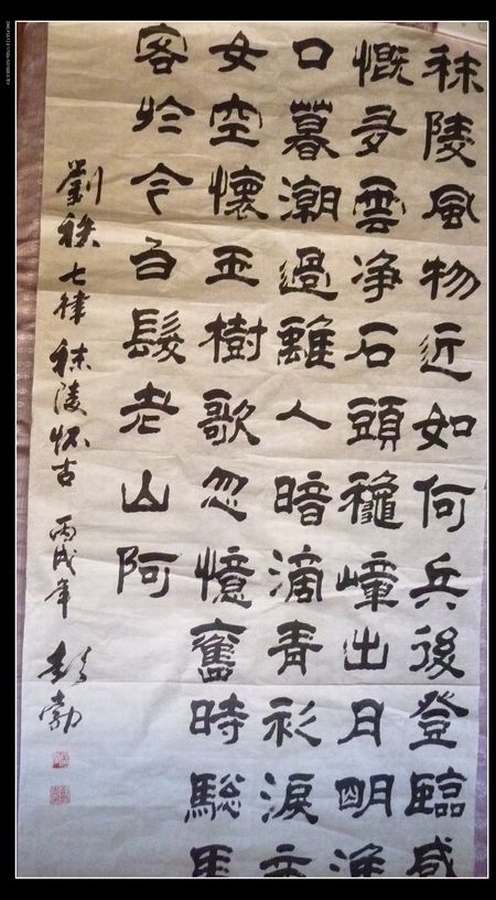 秣陵風物近如何兵後登臨感
慨多雲净石頭穐嶂出月明淮
口暮潮過離人暗滴青衫淚
女空懷玉樹歌忽憶舊時驄馬
客於今白髮老山阿
劉秩七律秣陵怀古 丙戌年 彭勃